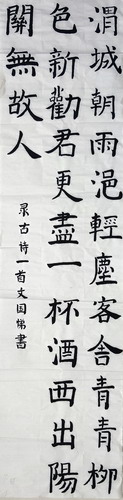 渭城朝雨浥輕塵客舍青青柳
色新勸君更盡一杯酒西出陽
關無故人
录古诗一首文国梯書